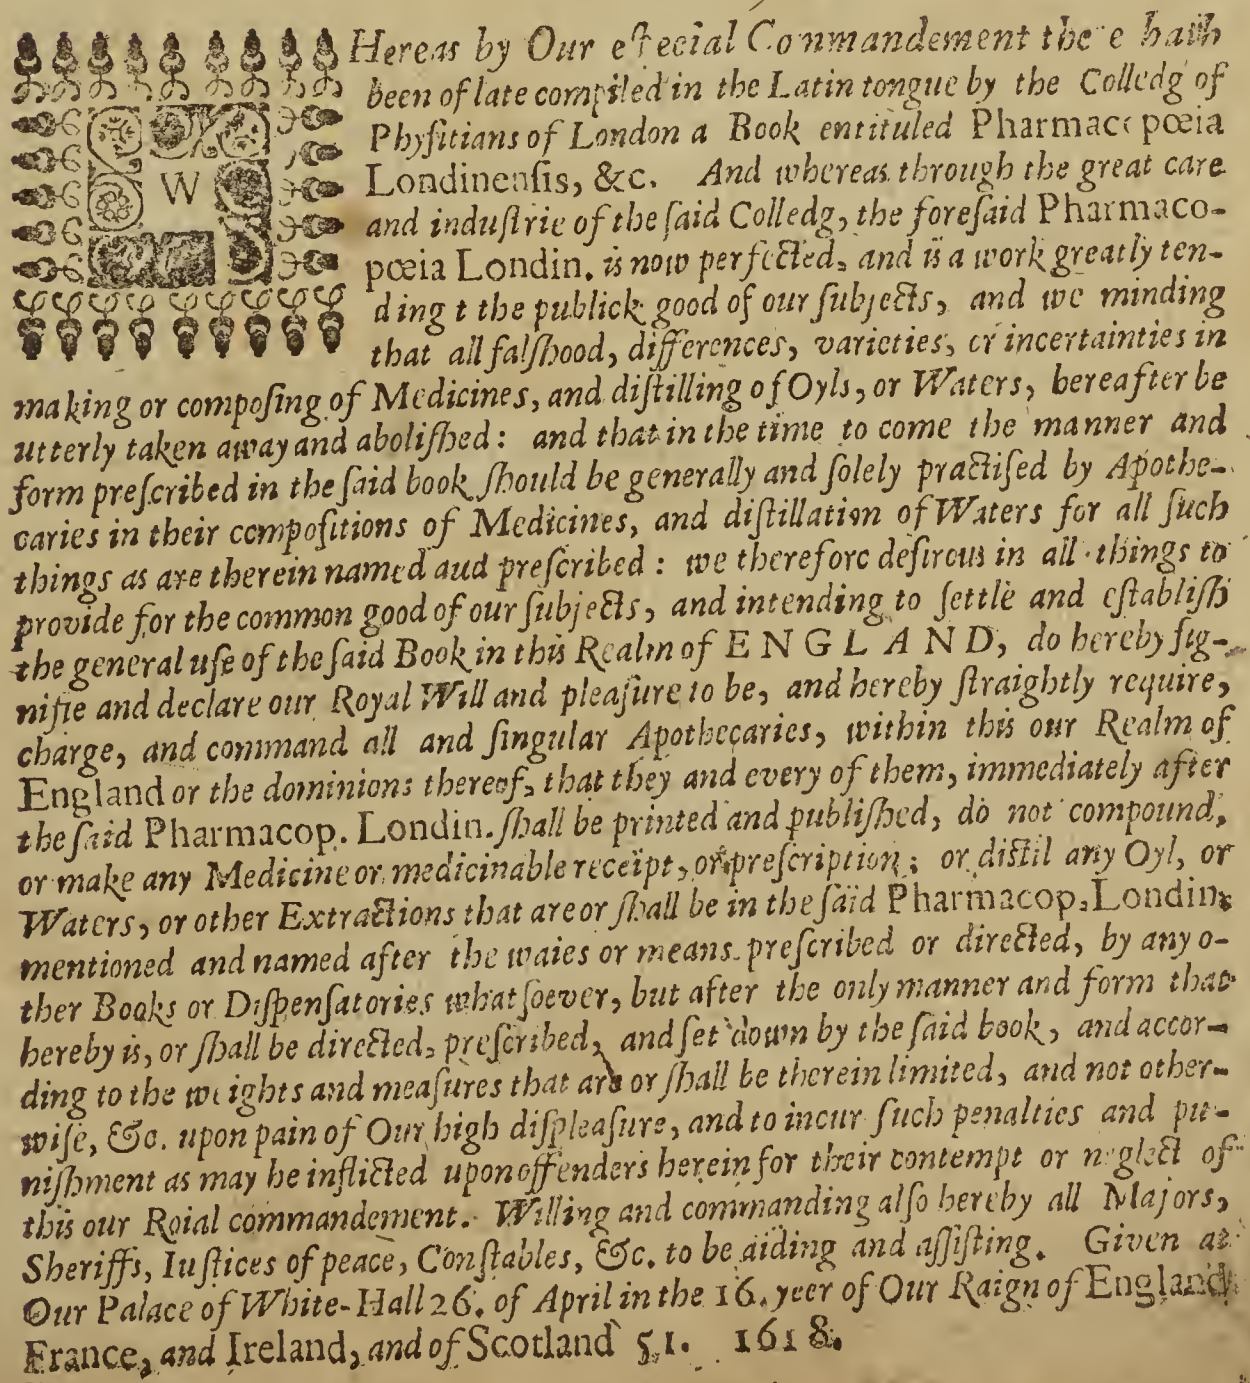 WHereas by Our especial Commandement there hath
been of late compiled in the Latin tongue by the Colledg of
Phyſitians of London a Book entituled Pharmacopœia
Londinenſis, &c. And whereas through the great care
and induſtrie of the ſaid Colledg, the foreſaid Pharmaco-
pœia Londin. is now perfected, and is a work greatly ten-
ding t the publick good of our ſubjects, and we minding
that all falſhood, differences, varieties, or incertainties in
making or compoſing of Medicines, and diſtilling of Oyls, or Waters, hereafter be
utterly taken away and aboliſhed: and that in the time to come the manner and
form preſcribed in the ſaid book ſhould be generally and ſolely practiſed by Apothe-
caries in their compoſitions of Medicines, and diſtillation of Waters for all ſuch
things as are therein named aud preſcribed: we therefore deſirous in all things to
provide for the common good of our ſubjects, and intending to ſettle and eſtabliſh
the general uſe of the ſaid Book in this Realm of ENGLAND, do hereby ſig-
nifie and declare our Royal Will and pleaſure to be, and hereby ſtraightly require,
charge, and command all and ſingular Apothecaries, within this our Realm of
England or the dominions thereof, that they and every of them, immediately after
the ſaid Pharmacop. Londin. ſhall be printed and publiſhed, do not compound,
or make any Medicine or medicinable receipt, or preſcription; or diſtil any Oyl, or
Waters, or other Extractions that are or ſhall be in the ſaid Pharmacop. Londin.
mentioned and named after the waies or means preſcribed or directed, by any o-
ther Books or Diſpenſatories whatſoever, but after the only manner and form that
hereby is, or ſhall be directed, preſcribed, and ſet down by the ſaid book, and accor-
ding to the weights and meaſures that are or ſhall be therein limited, and not other-
wiſe, &c. upon pain of Our high diſpleaſure, and to incur ſuch penalties and pu-
niſhment as may be inflicted upon offenders herein for their contempt or neglect of
this our Roial commandement. Willing and commanding alſo hereby all Majors,
Sheriffs, Iuſtices of peace, Conſtables, &c. to be aiding and aſſiſting. Given at
Our Palace of White-Hall 26. of April in the 16. yeer of Our Raign of England
France, and Ireland, and of Scotland 51. 1618.